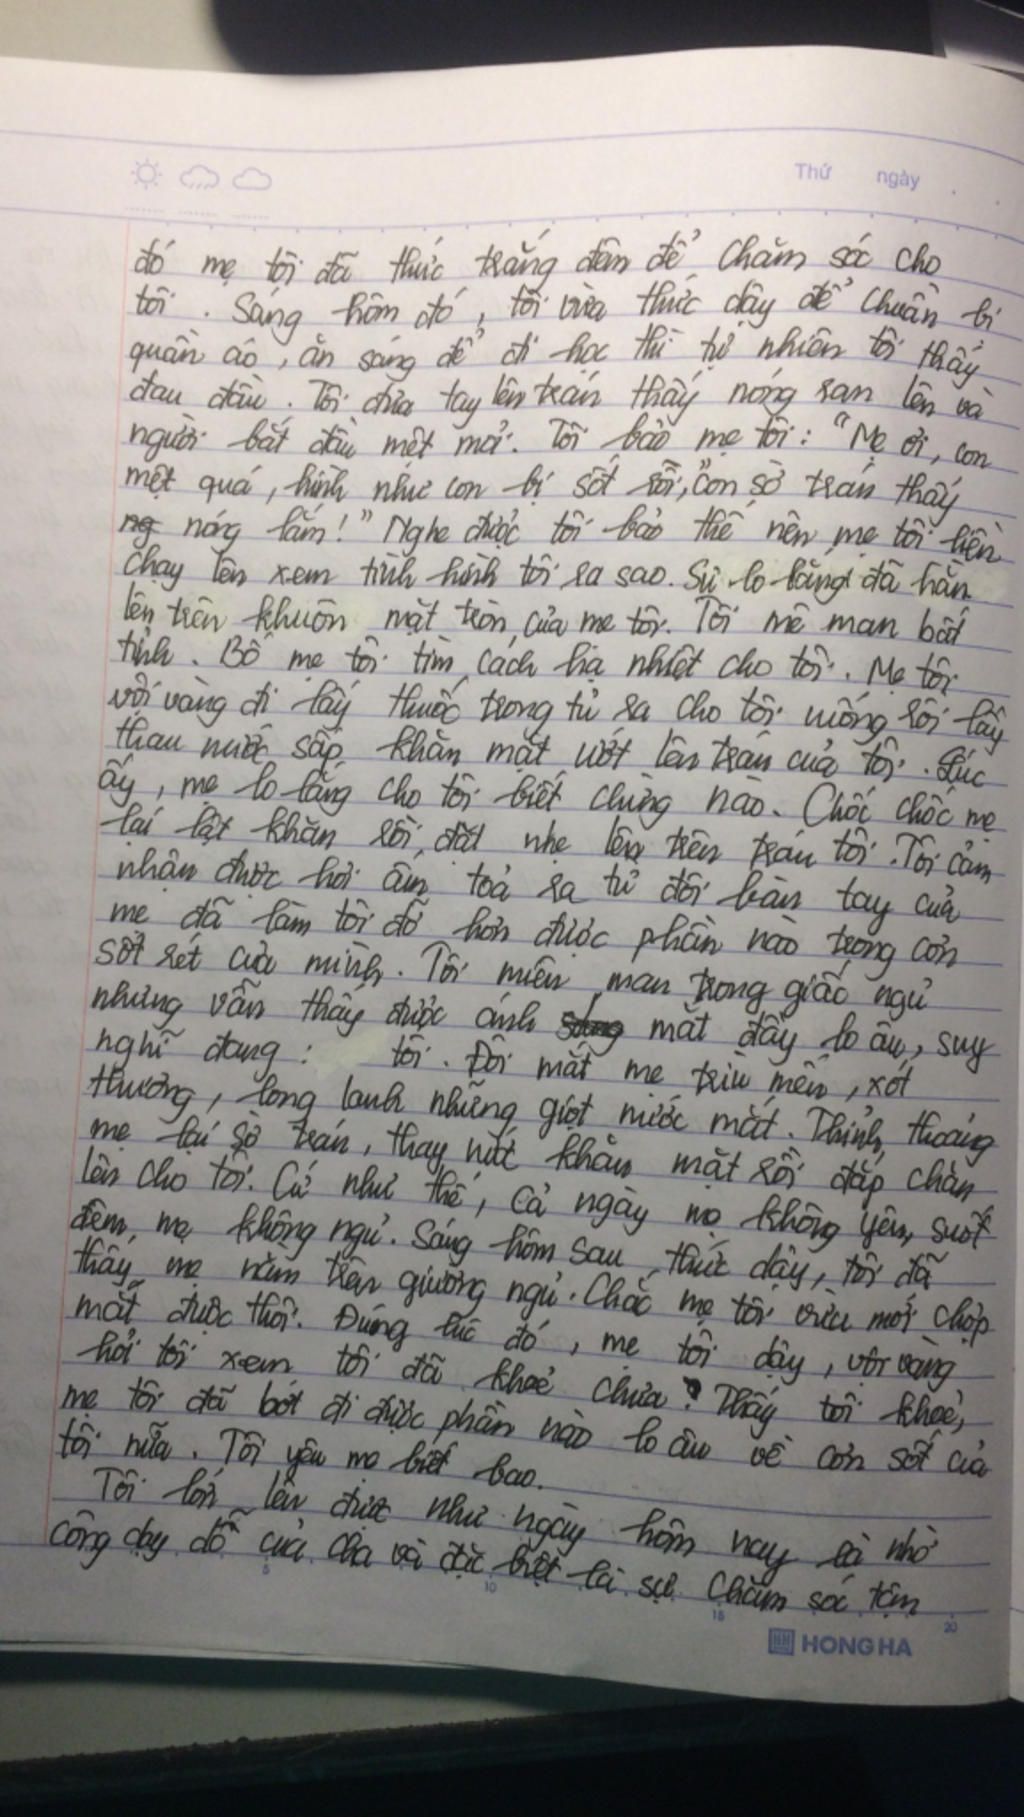 Thứ ngày
đó mẹ tôi đã thức trắng đêm để chăm sóc cho
tôi. Sáng hôm đó, tôi vừa thức dậy để chuẩn bị
quần áo, ăn sáng để đi học thì tự nhiên tôi thấy
đau đầu. Tôi đưa tay lên trán thấy nóng ran lên và
người bắt đầu mệt mỏi. Tôi bảo mẹ tôi: "Mẹ ơi, con
mệt quá, hình như con bị sốt rồi, con sờ trán thấy
ng nóng lắm!" Nghe được tôi bảo thế nên mẹ tôi liền
chạy lên xem tình hình tôi ra sao. Sự lo lắng đã hằn
lên trên khuôn mặt tròn của mẹ tôi. Tôi mê man bất
tỉnh. Bố mẹ tôi tìm cách hạ nhiệt cho tôi. Mẹ tôi
vội vàng đi lấy thuốc trong tủ ra cho tôi uống rồi lấy
thau nước sấp khăn mặt ướt lên trán của tôi. Lúc
ấy, mẹ lo lắng cho tôi biết chừng nào. Chốc chốc mẹ
lại lật khăn rồi đặt nhẹ lên trên trán tôi. Tôi cảm
nhận được hơi ấm toả ra từ đôi bàn tay của
mẹ đã làm tôi đỡ hơn được phần nào trong cơn
sốt rét của mình. Tôi miên man trong giấc ngủ
nhưng vẫn thấy được ánh mắt đầy lo âu, suy
nghĩ đang: tôi. Đôi mắt mẹ trìu mến, xót
thương, long lanh những giọt nước mắt. Thỉnh thoảng
mẹ lại sờ trán, thay nước khăn mặt rồi đắp chăn
lên cho tôi. Cứ như thế, cả ngày mẹ không yên, suốt
đêm, mẹ không ngủ. Sáng hôm sau thức dậy, tôi đã
thấy mẹ nằm trên giường ngủ. Chắc mẹ tôi vừa mới chợp
mắt được thôi. Đúng lúc đó, mẹ tôi dậy, vội vàng
hỏi tôi xem tôi đã khoẻ chưa? Thấy tôi khoẻ,
mẹ tôi đã bớt đi được phần nào lo âu về cơn sốt của
tôi nữa. Tôi yêu mẹ biết bao.
Tôi lớn lên được như ngày hôm nay là nhờ
công dạy dỗ của cha và đặc biệt là sự chăm sóc tận
5 10 15 20
HONG HA